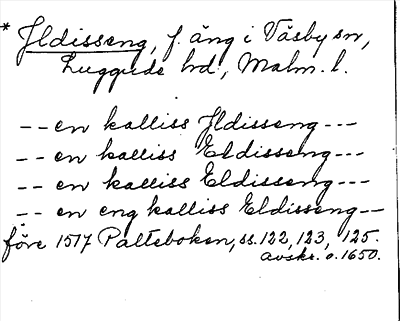 * Ildisseng, f. äng i Väsby sn,
Luggude hd, Malm. l.
-- en kalliss Ildisseng ---
-- en kalliss Eldisseng ---
-- en kalliss Eldisseng ---
-- en eng kalliss Eldisseng --
före 1517 Palteboken, ss. 122, 123, 125.
avskr. o. 1650.